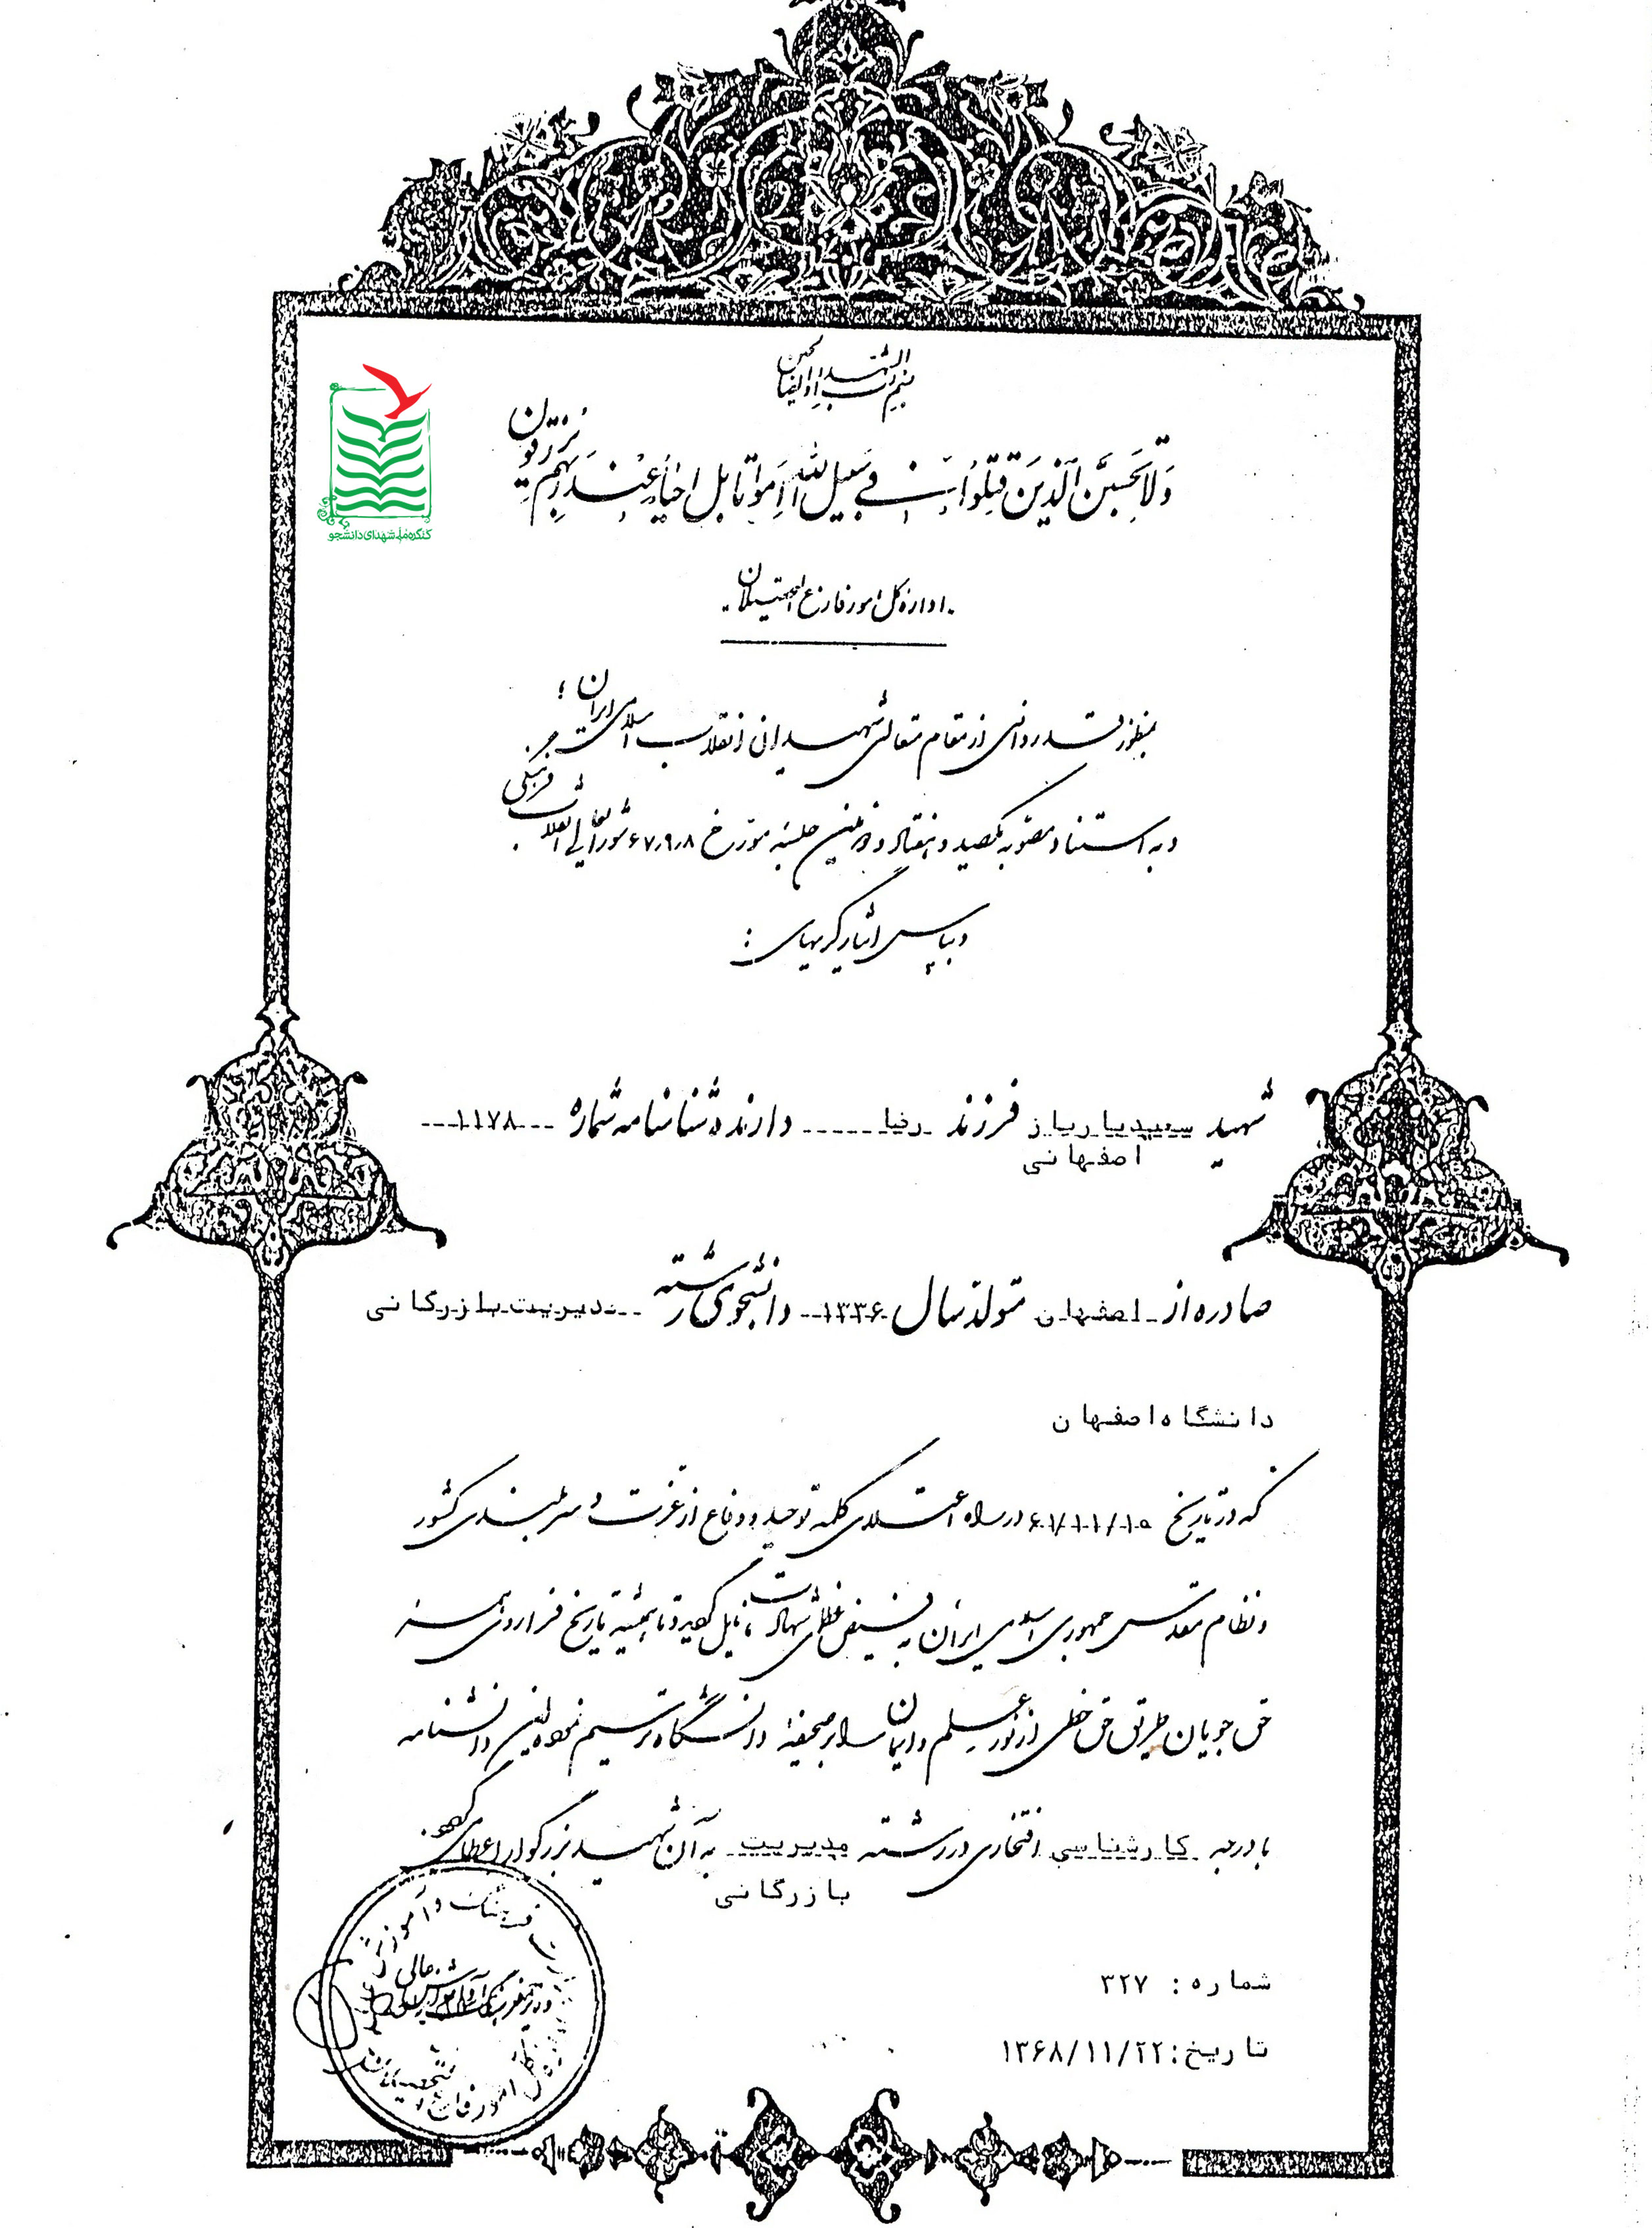 بسم رب الشهداء و الصدیقین
وَلا تَحْسَبَنَّ الَّذینَ قُتِلُوا فی سَبیلِ اللهِ اَمْواتاً بَلْ اَحْیاءٌ عِنْدَ رَبِّهِمْ یُرْزَقُونَ
کنگره ملی شهدای دانشجو
اداره کل امور فارغ التحصیلان
بمنظور قدردانی از مقام متعالی شهیدان انقلاب اسلامی ایران؛
و به استناد مصوبه یکصد و هفتاد و دومین جلسه مورخ ۶۷٫۹٫۸ شورایعالی انقلاب فرهنگی
و بپاس ایثارگریهای:
شهید سعید یاریاز فرزند رضا دارنده شناسنامه شماره ۱۱۷۸
اصفهانی
صادره از اصفهان متولد سال ۱۳۳۶ دانشجوی رشته مدیریت بازرگانی
دانشگاه اصفهان
که در تاریخ ۶۱/۱۱/۱۵ در راه اعتلای کلمه توحید و دفاع از عزت و سربلندی کشور
و نظام مقدس جمهوری اسلامی ایران به فیض عظمای شهادت نایل گردید و تا همیشه تاریخ فراروی همه
حق جویان طریق حق خطی از نور علم و ایمان را بر صحیفه دانشگاه ترسیم نمود این دانشنامه
با درجه کارشناسی افتخاری در رشته مدیریت به آن شهید بزرگوار اعطا میگردد.
بازرگانی
شماره: ۳۲۷
تاریخ: ۱۳۶۸/۱۱/۲۲
فرهنگ و آموزش عالی
کل امور فارغ التحصیلان